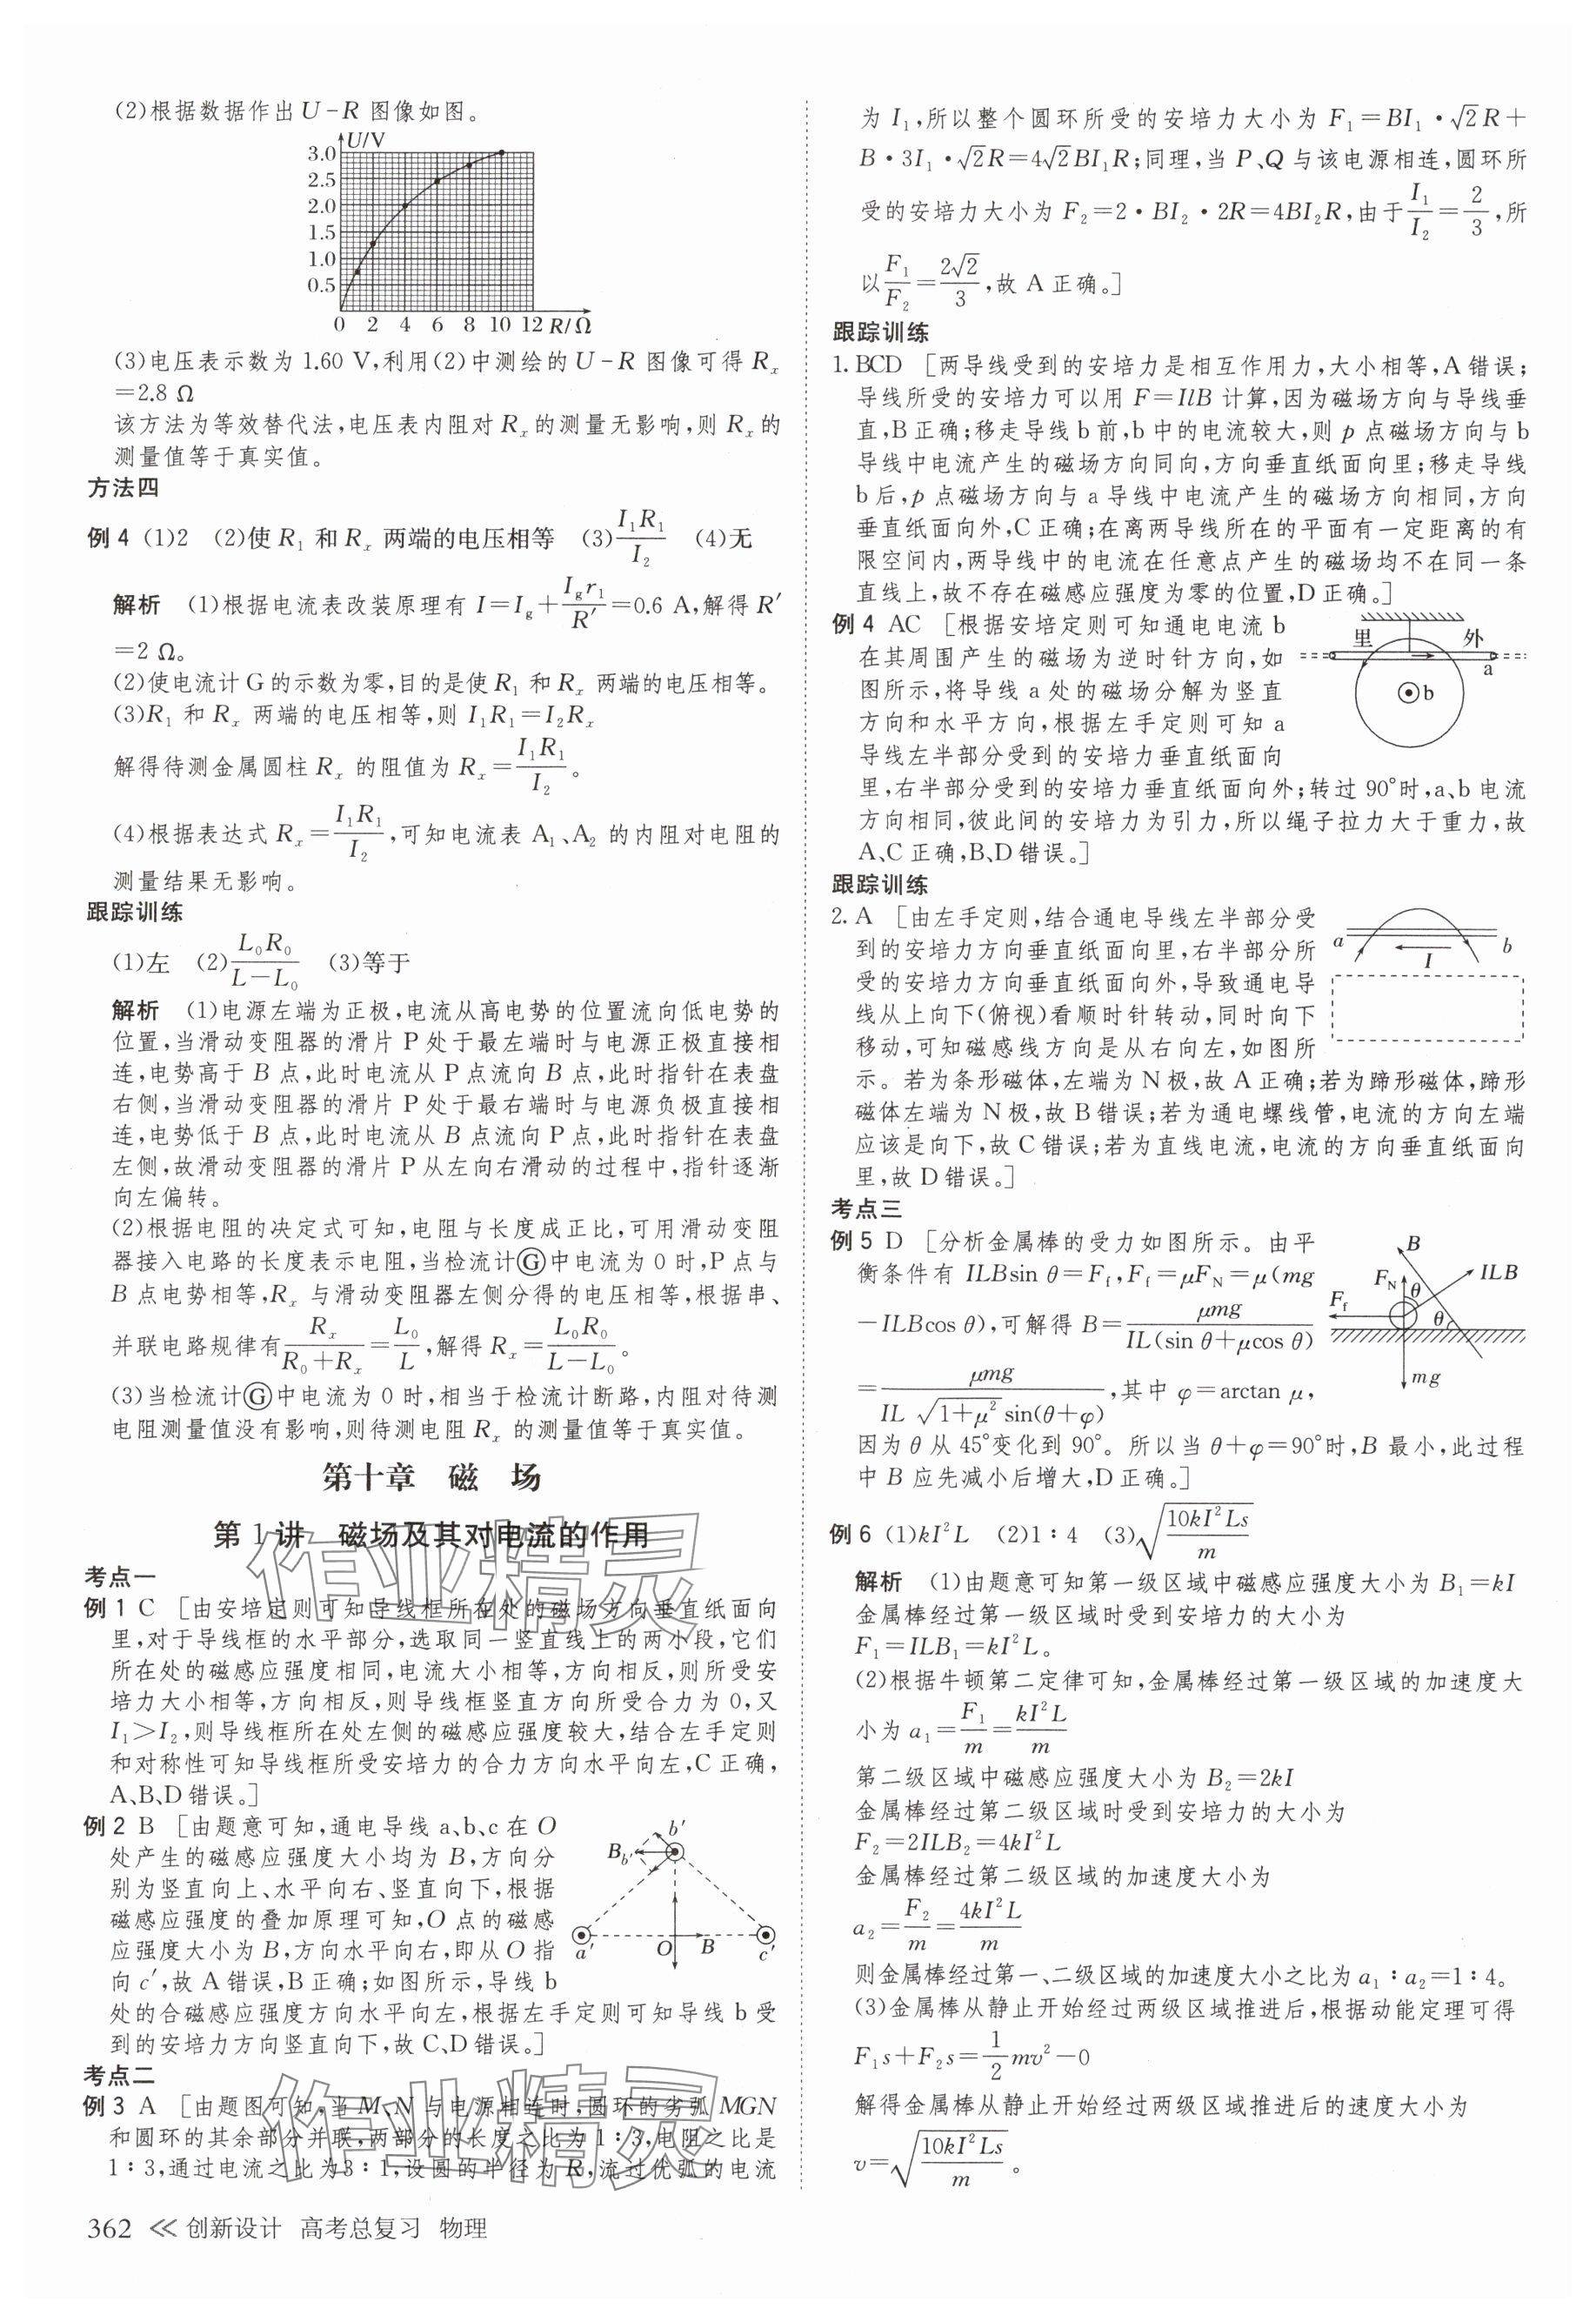 (2)根据数据作出U-R图像如图。
U/V
3.0
2.5
2.0
1.5
1.0
0.5
0 2 4 6 8 10 12 R/Ω
(3)电压表示数为1.60 V,利用(2)中测绘的U-R图像可得Rₓ
=2.8 Ω
该方法为等效替代法,电压表内阻对Rₓ的测量无影响,则Rₓ的
测量值等于真实值。
方法四
例4 (1)2 (2)使R₁和Rₓ两端的电压相等 (3)I₁R₁/I₂ (4)无
解析 (1)根据电流表改装原理有I=I_g+I_g r₁/R′=0.6 A,解得R′
=2 Ω。
(2)使电流计G的示数为零,目的是使R₁和Rₓ两端的电压相等。
(3)R₁和Rₓ两端的电压相等,则I₁R₁=I₂Rₓ
解得待测金属圆柱Rₓ的阻值为Rₓ=I₁R₁/I₂。
(4)根据表达式Rₓ=I₁R₁/I₂,可知电流表A₁、A₂的内阻对电阻的
测量结果无影响。
跟踪训练
(1)左 (2)L₀R₀/(L-L₀) (3)等于
解析 (1)电源左端为正极,电流从高电势的位置流向低电势的
位置,当滑动变阻器的滑片P处于最左端时与电源正极直接相
连,电势高于B点,此时电流从P点流向B点,此时指针在表盘
右侧,当滑动变阻器的滑片P处于最右端时与电源负极直接相
连,电势低于B点,此时电流从B点流向P点,此时指针在表盘
左侧,故滑动变阻器的滑片P从左向右滑动的过程中,指针逐渐
向左偏转。
(2)根据电阻的决定式可知,电阻与长度成正比,可用滑动变阻
器接入电路的长度表示电阻,当检流计Ⓖ中电流为0时,P点与
B点电势相等,Rₓ与滑动变阻器左侧分得的电压相等,根据串、
并联电路规律有Rₓ/(R₀+Rₓ)=L₀/L,解得Rₓ=L₀R₀/(L-L₀)。
(3)当检流计Ⓖ中电流为0时,相当于检流计断路,内阻对待测
电阻测量值没有影响,则待测电阻Rₓ的测量值等于真实值。
第十章 磁 场
第1讲 磁场及其对电流的作用
考点一
例1 C [由安培定则可知导线框所在处的磁场方向垂直纸面向
里,对于导线框的水平部分,选取同一竖直线上的两小段,它们
所在处的磁感应强度相同,电流大小相等,方向相反,则所受安
培力大小相等,方向相反,则导线框竖直方向所受合力为0,又
I₁>I₂,则导线框所在处左侧的磁感应强度较大,结合左手定则
和对称性可知导线框所受安培力的合力方向水平向左,C正确,
A、B、D错误。]
例2 B [由题意可知,通电导线a、b、c在O
处产生的磁感应强度大小均为B,方向分
别为竖直向上、水平向右、竖直向下,根据
磁感应强度的叠加原理可知,O点的磁感
应强度大小为B,方向水平向右,即从O指
向c′,故A错误,B正确;如图所示,导线b
处的合磁感应强度方向水平向左,根据左手定则可知导线b受
到的安培力方向竖直向下,故C、D错误。]
b′
B_b′
a′ O B c′
考点二
例3 A [由题图可知,当M、N与电源相连时,圆环的劣弧MGN
和圆环的其余部分并联,两部分的长度之比为1∶3,电阻之比是
1∶3,通过电流之比为3∶1,设圆的半径为R,流过优弧的电流
362 << 创新设计 高考总复习 物理
为I₁,所以整个圆环所受的安培力大小为F₁=BI₁·√2R+
B·3I₁·√2R=4√2BI₁R;同理,当P、Q与该电源相连,圆环所
受的安培力大小为F₂=2·BI₂·2R=4BI₂R,由于I₁/I₂=2/3,所
以F₁/F₂=2√2/3,故A正确。]
跟踪训练
1. BCD [两导线受到的安培力是相互作用力,大小相等,A错误;
导线所受的安培力可以用F=IlB计算,因为磁场方向与导线垂
直,B正确;移走导线b前,b中的电流较大,则p点磁场方向与b
导线中电流产生的磁场方向同向,方向垂直纸面向里;移走导线
b后,p点磁场方向与a导线中电流产生的磁场方向相同,方向
垂直纸面向外,C正确;在离两导线所在的平面有一定距离的有
限空间内,两导线中的电流在任意点产生的磁场均不在同一条
直线上,故不存在磁感应强度为零的位置,D正确。]
例4 AC [根据安培定则可知通电电流b
在其周围产生的磁场为逆时针方向,如
图所示,将导线a处的磁场分解为竖直
方向和水平方向,根据左手定则可知a
导线左半部分受到的安培力垂直纸面向
里,右半部分受到的安培力垂直纸面向外;转过90°时,a、b电流
方向相同,彼此间的安培力为引力,所以绳子拉力大于重力,故
A、C正确,B、D错误。]
里 外
a
b
跟踪训练
2. A [由左手定则,结合通电导线左半部分受
到的安培力方向垂直纸面向里,右半部分所
受的安培力方向垂直纸面向外,导致通电导
线从上向下(俯视)看顺时针转动,同时向下
移动,可知磁感线方向是从右向左,如图所
示。若为条形磁体,左端为N极,故A正确;若为蹄形磁体,蹄形
磁体左端为N极,故B错误;若为通电螺线管,电流的方向左端
应该是向下,故C错误;若为直线电流,电流的方向垂直纸面向
里,故D错误。]
a I b
考点三
例5 D [分析金属棒的受力如图所示。由平
衡条件有ILBsin θ=F_f,F_f=μF_N=μ(mg
-ILBcos θ),可解得B=μmg/[IL(sin θ+μcos θ)]
=μmg/[IL√(1+μ²)sin(θ+φ)],其中φ=arctan μ,
因为θ从45°变化到90°。所以当θ+φ=90°时,B最小,此过程
中B应先减小后增大,D正确。]
B
F_N θ ILB
F_f θ
mg
例6 (1)kI²L (2)1∶4 (3)√(10kI²Ls/m)
解析 (1)由题意可知第一级区域中磁感应强度大小为B₁=kI
金属棒经过第一级区域时受到安培力的大小为
F₁=ILB₁=kI²L。
(2)根据牛顿第二定律可知,金属棒经过第一级区域的加速度大
小为a₁=F₁/m=kI²L/m
第二级区域中磁感应强度大小为B₂=2kI
金属棒经过第二级区域时受到安培力的大小为
F₂=2ILB₂=4kI²L
金属棒经过第二级区域的加速度大小为
a₂=F₂/m=4kI²L/m
则金属棒经过第一、二级区域的加速度大小之比为a₁∶a₂=1∶4。
(3)金属棒从静止开始经过两级区域推进后,根据动能定理可得
F₁s+F₂s=1/2mv²-0
解得金属棒从静止开始经过两级区域推进后的速度大小为
v=√(10kI²Ls/m)。
作业精灵
作业精灵